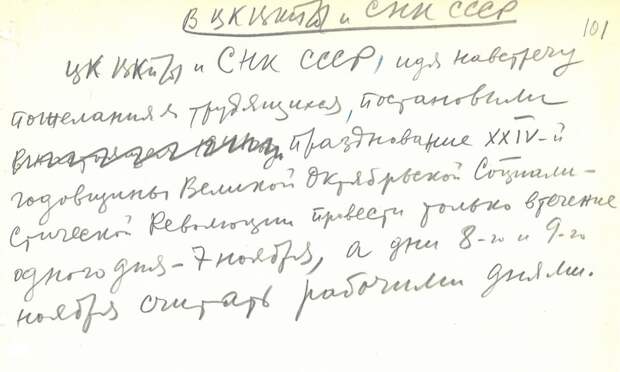 В ЦК ВКП(б) и СНК СССР
101
ЦК ВКП(б) и СНК СССР, идя навстречу
пожеланиям трудящихся, постановили
празднование XXIV-й
годовщины Великой Октябрьской Социали-
стической Революции провести только втечение
одного дня – 7 ноября, а дни 8-го и 9-го
ноября считать рабочими днями.